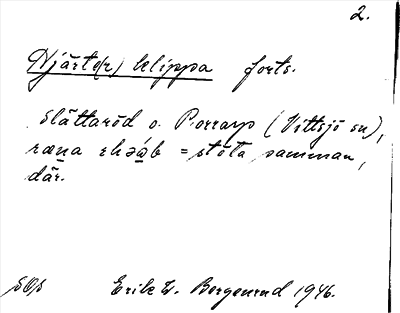 2.
Njärt(er) klippa forts.
Slättaröd o. Porrarp (Vittsjö sn),
ræna = stöta samman,
där.
Erik W. Bergenrud 1946.